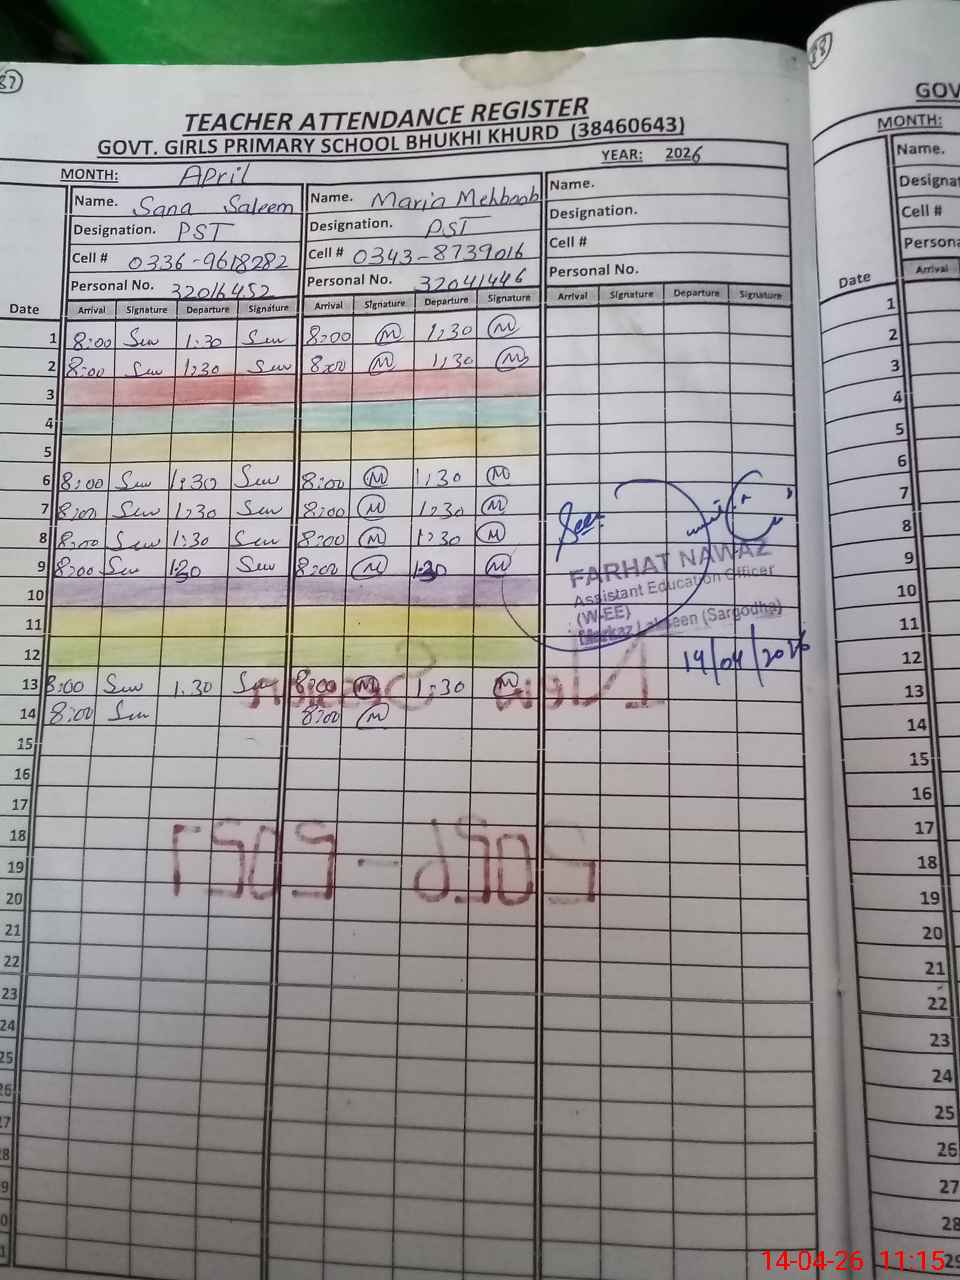 87
TEACHER ATTENDANCE REGISTER
GOVT. GIRLS PRIMARY SCHOOL BHUKHI KHURD (38460643)
MONTH: April YEAR: 2026
Name. Sana Saleem Name. Maria Mehboob Name.
Designation. PST Designation. PST Designation.
Cell # 0336-9618282 Cell # 0343-8739016 Cell #
Personal No. 32016452 Personal No. 32041446 Personal No.
Date Arrival Signature Departure Signature Arrival Signature Departure Signature Arrival Signature Departure Signature
1 8:00 1:30 8:00 M 1:30 M
2 8:00 1:30 8:00 M 1:30 M
3
4
5
6 8:00 1:30 8:00 M 1:30 M
7 8:00 1:30 8:00 M 1:30 M
8 8:00 1:30 8:00 M 1:30 M
9 8:00 1:30 8:00 M 1:30 M
10
11
12
13 8:00 1:30 8:00 M 1:30 M
14 8:00 8:00 M
15
16
17
18
19
20
21
22
23
24
25
26
27
28
9
0
1
Seen
FARHAT NAWAZ
Assistant Education Officer
(W-EE)
Markaz (Sargodha)
14/04/2026
New Session
2026-2027
88
GOV
MONTH:
Name.
Designat
Cell #
Persona
Date Arrival
1
2
3
4
5
6
7
8
9
10
11
12
13
14
15
16
17
18
19
20
21
22
23
24
25
26
27
28
29
14-04-26 11:15